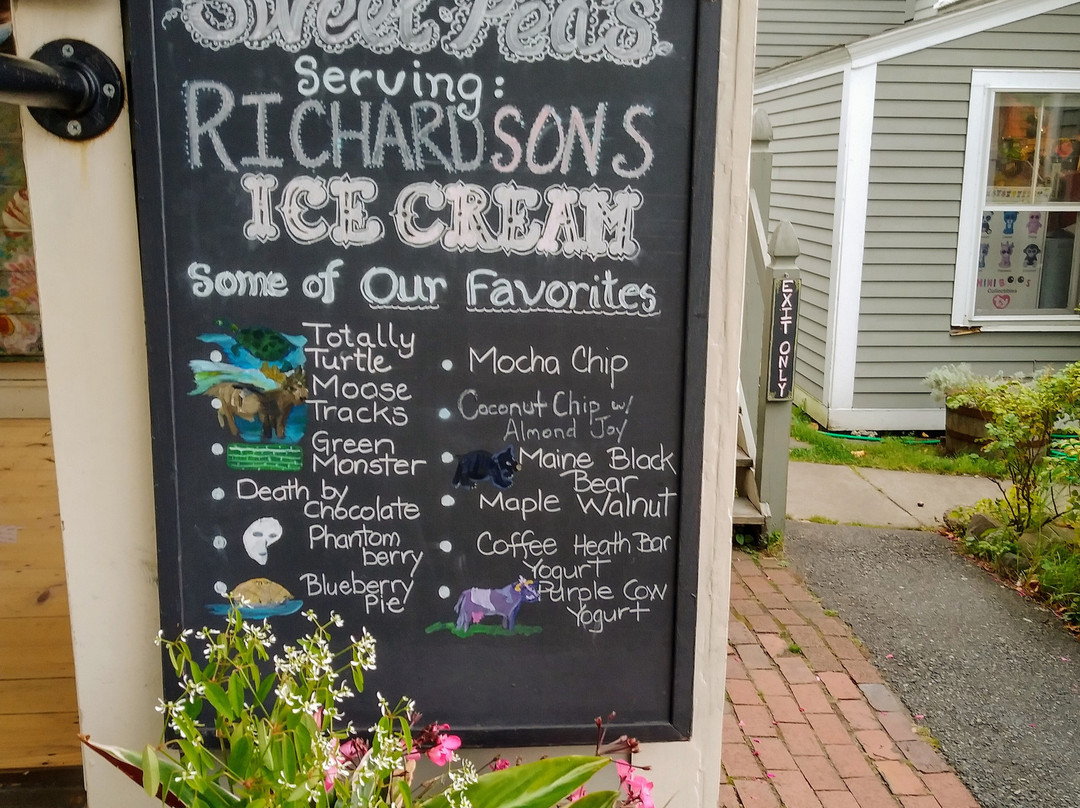 Sweet Pea's
Serving:
RICHARDSONS
ICE CREAM
Some of Our Favorites
Totally
Turtle
Moose
Tracks
Green
Monster
Death by
Chocolate
Phantom
berry
Blueberry
Pie
Mocha Chip
Coconut Chip w/
Almond Joy
Maine Black
Bear
Maple Walnut
Coffee Heath Bar
Yogurt
Purple Cow
Yogurt
EXIT ONLY
ty